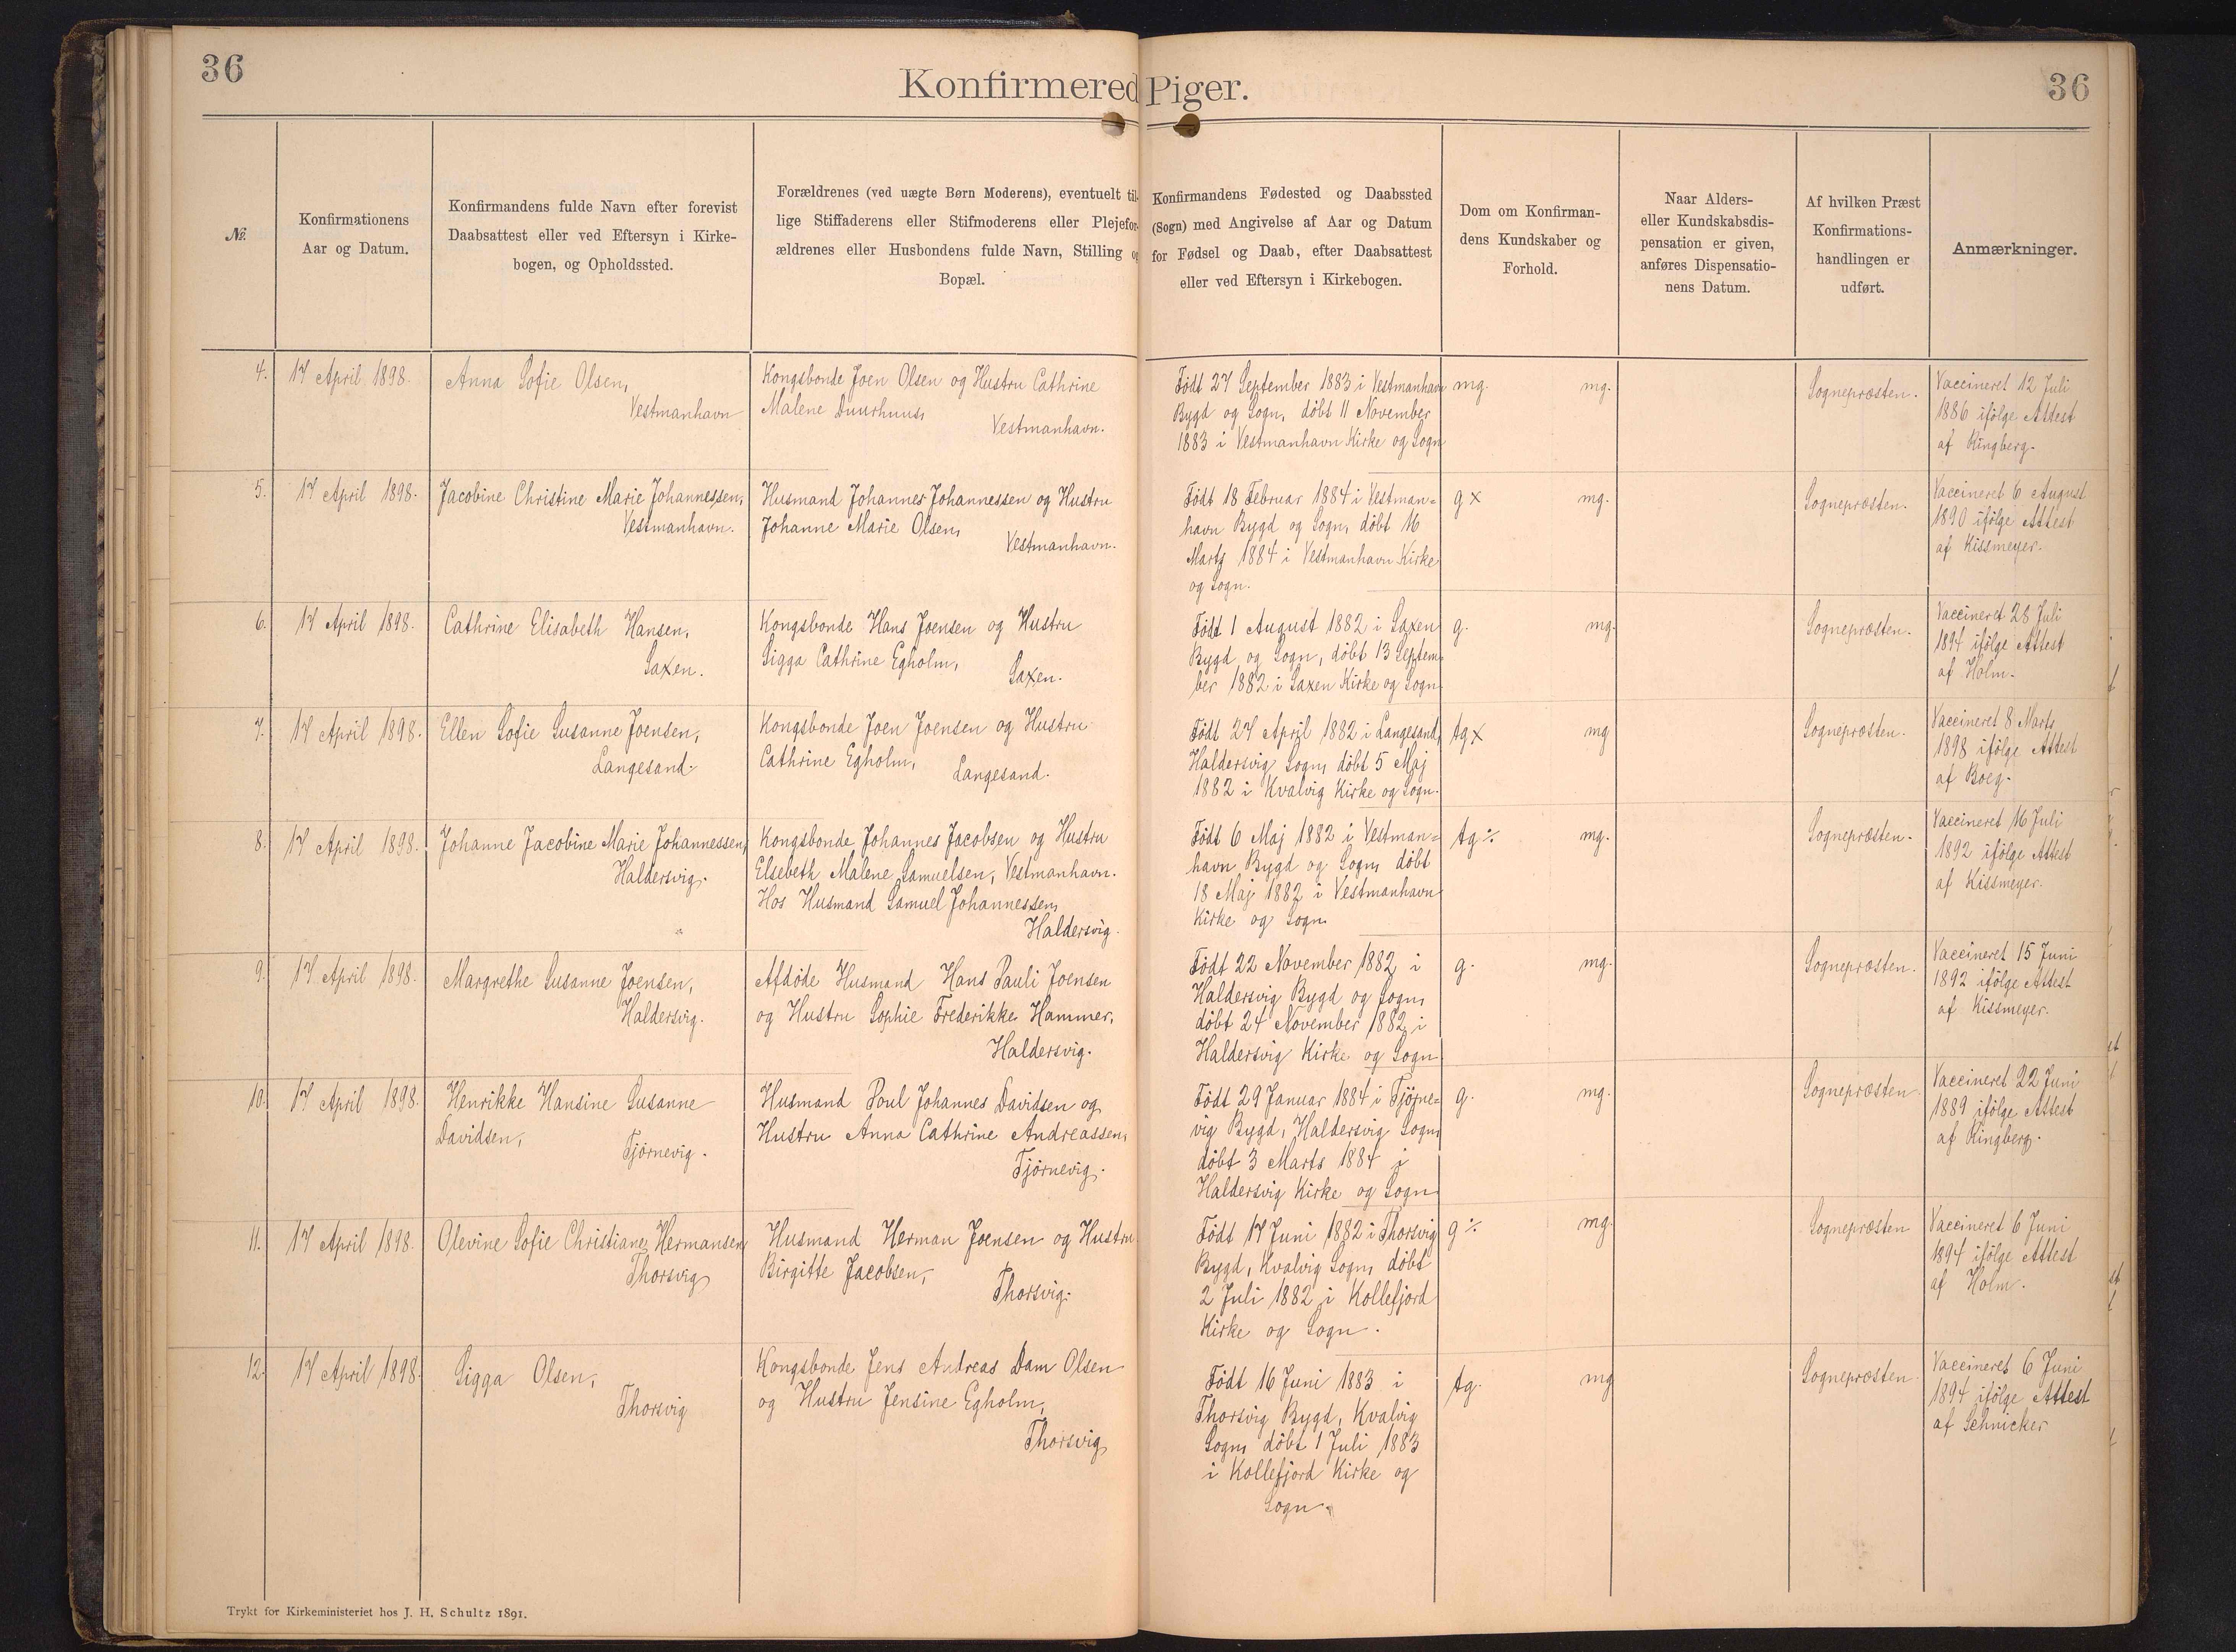 36
Konfirmered Piger.
36
№.
Konfirmationens
Aar og Datum.
Konfirmandens fulde Navn efter forevist
Daabsattest eller ved Eftersyn i Kirke-
bogen, og Opholdssted.
Forældrenes (ved uægte Børn Moderens), eventuelt til-
lige Stiffaderens eller Stifmoderens eller Plejefor-
ældrenes eller Husbondens fulde Navn, Stilling og
Bopæl.
Konfirmandens Fødested og Daabssted
(Sogn) med Angivelse af Aar og Datum
for Fødsel og Daab, efter Daabsattest
eller ved Eftersyn i Kirkebogen.
Dom om Konfirman-
dens Kundskaber og
Forhold.
Naar Alders-
eller Kundskabsdis-
pensation er given,
anføres Dispensatio-
nens Datum.
Af hvilken Præst
Konfirmations-
handlingen er
udført.
Anmærkninger.
4.
17 April 1898.
Anna Sofie Olsen,
Vestmanhavn
Kongsbonde Joen Olsen og Hustru Cathrine
Malene Duurhuus,
Vestmanhavn.
Født 27 September 1883 i Vestmanhavn
Bygd og Sogn, döbt 11 November
1883 i Vestmanhavn Kirke og Sogn
mg. mg.
Sognepræsten.
Vaccineret 12 Juli
1886 ifölge Attest
af Ringberg.
5.
17 April 1898.
Jacobine Christine Marie Johannessen,
Vestmanhavn.
Husmand Johannes Johannessen og Hustru
Johanne Marie Olsen,
Vestmanhavn.
Födt 18 Februar 1884 i Vestman=
havn Bygd og Sogn, döbt 16
Marts 1884 i Vestmanhavn Kirke
og Sogn.
g x mg.
Sognepræsten.
Vaccineret 6 August
1890 ifölge Attest
af Kissmeyer.
6.
17 April 1898.
Cathrine Elisabeth Hansen,
Saxen.
Kongsbonde Hans Joensen og Hustru
Sigga Cathrine Egholm,
Saxen.
Födt 1 August 1882 i Saxen
Bygd og Sogn, döbt 13 Septem=
ber 1882 i Saxen Kirke og Sogn.
g. mg.
Sognepræsten.
Vaccineret 28 Juli
1894 ifölge Attest
af Holm.
7.
17 April 1898.
Ellen Sofie Susanne Joensen,
Langesand.
Kongsbonde Joen Joensen og Hustru
Cathrine Egholm,
Langesand.
Födt 27 April 1882 i Langesand,
Haldersvig Sogn, döbt 5 Maj
1882 i Kvalvig Kirke og Sogn.
tg x mg
Sognepræsten.
Vaccineret 8 Marts
1898 ifölge Attest
af Boeg.
8.
17 April 1898.
Johanne Jacobine Marie Johannessen,
Haldersvig.
Kongsbonde Johannes Jacobsen og Hustru
Elsebeth Malene Samuelsen, Vestmanhavn.
Hos Husmand Samuel Johannessen,
Haldersvig.
Födt 6 Maj 1882 i Vestman=
havn Bygd og Sogn, döbt
18 Maj 1882 i Vestmanhavn
Kirke og Sogn
tg ⁒ mg.
Sognepræsten.
Vaccineret 16 Juli
1892 ifölge Attest
af Kissmeyer.
9.
17 April 1898.
Margrethe Susanne Joensen,
Haldersvig.
Afdøde Husmand Hans Pauli Joensen
og Hustru Sophie Frederikke Hammer,
Haldersvig.
Födt 22 November 1882 i
Haldersvig Bygd og Sogn,
döbt 24 November 1882 i
Haldersvig Kirke og Sogn
g. mg.
Sognepræsten.
Vaccineret 15 Juni
1892 ifölge Attest
af Kissmeyer.
10.
17 April 1898.
Henrikke Hansine Susanne
Davidsen,
Tjörnevig.
Husmand Poul Johannes Davidsen og
Hustru Anna Cathrine Andreassen,
Tjörnevig.
Födt 29 Januar 1884 i Tjörne=
vig Bygd, Haldersvig Sogn,
döbt 3 Marts 1884 i
Haldersvig Kirke og Sogn
g. mg.
Sognepræsten
Vaccineret 22 Juni
1889 ifölge Attest
af Ringberg.
11.
17 April 1898.
Olevine Sofie Christiane Hermansen,
Thorsvig
Husmand Herman Joensen og Hustru
Birgitte Jacobsen,
Thorsvig.
Födt 17 Juni 1882 i Thorsvig
Bygd, Kvalvig Sogn, döbt
2 Juli 1882 i Kollefjord
Kirke og Sogn.
g ⁒ mg.
Sognepræsten
Vaccineret 6 Juni
1894 ifölge Attest
af Holm.
12.
17 April 1898.
Sigga Olsen,
Thorsvig
Kongsbonde Jens Andreas Dam Olsen
og Hustru Jensine Egholm,
Thorsvig
Födt 16 Juni 1883 i
Thorsvig Bygd, Kvalvig
Sogn, döbt 1 Juli 1883
i Kollefjord Kirke og
Sogn.
tg. mg
Sognepræsten.
Vaccineret 6 Juni
1894 ifölge Attest
af Schnicker
Trykt for Kirkeministeriet hos J. H. Schultz 1891.